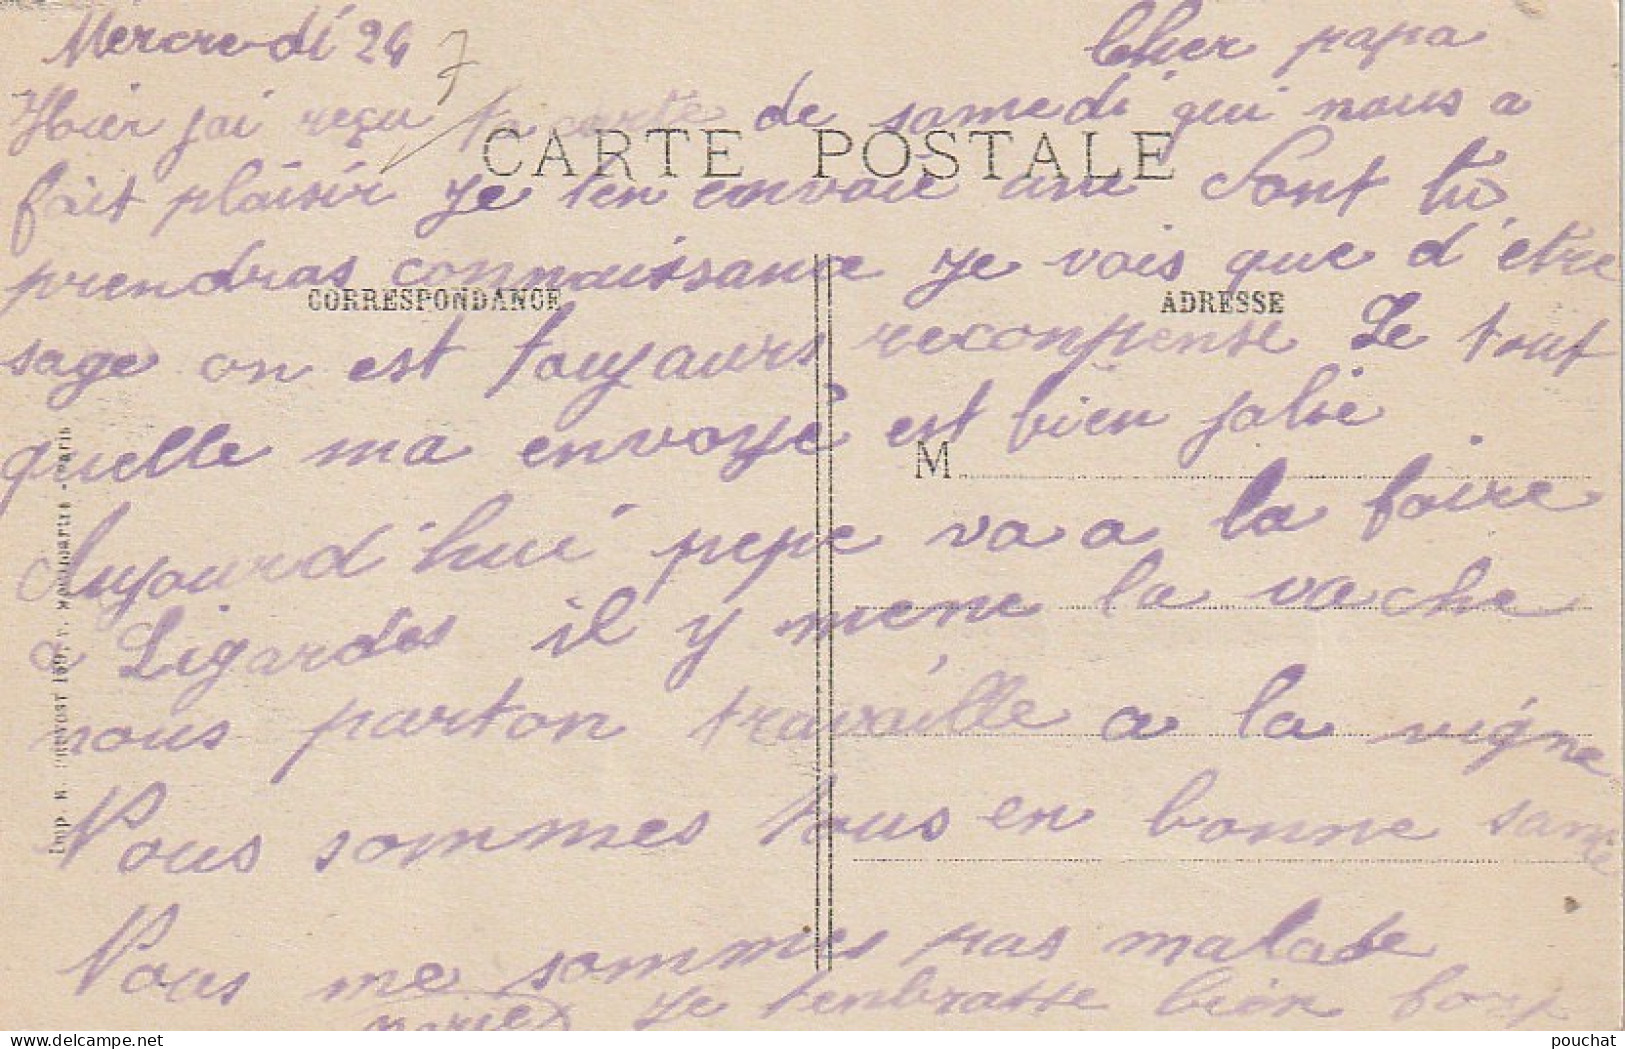 Mercredi 24 7 Cher papa
Hier jai reçu ta carte de samedi qui nous a
CARTE POSTALE
fait plaisir je ten envoie une dont tu
prendras connaissanse je vois que d'etre
CORRESPONDANCE ADRESSE
sage on est toujours reconpense Le tout
quelle ma envoyé est bien jolie
M
Aujourd'hui pepe va a la foire
a Ligardes il y mene la vache
nous parton travaille a la vigne
Nous sommes tous en bonne santé
Nous me sommes pas malade
je tenbrasse bien fort
Imp. E. PREVOST 159, r. Montmartre - Paris
pouchat